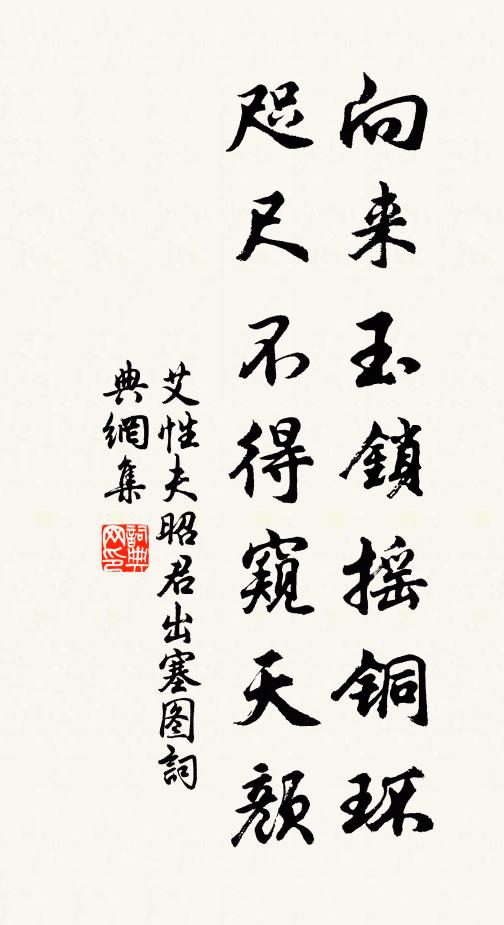 向来玉鎖摇銅环
咫尺不得窺天顔
艾性夫昭君出塞图詞
典網集
詞典网印